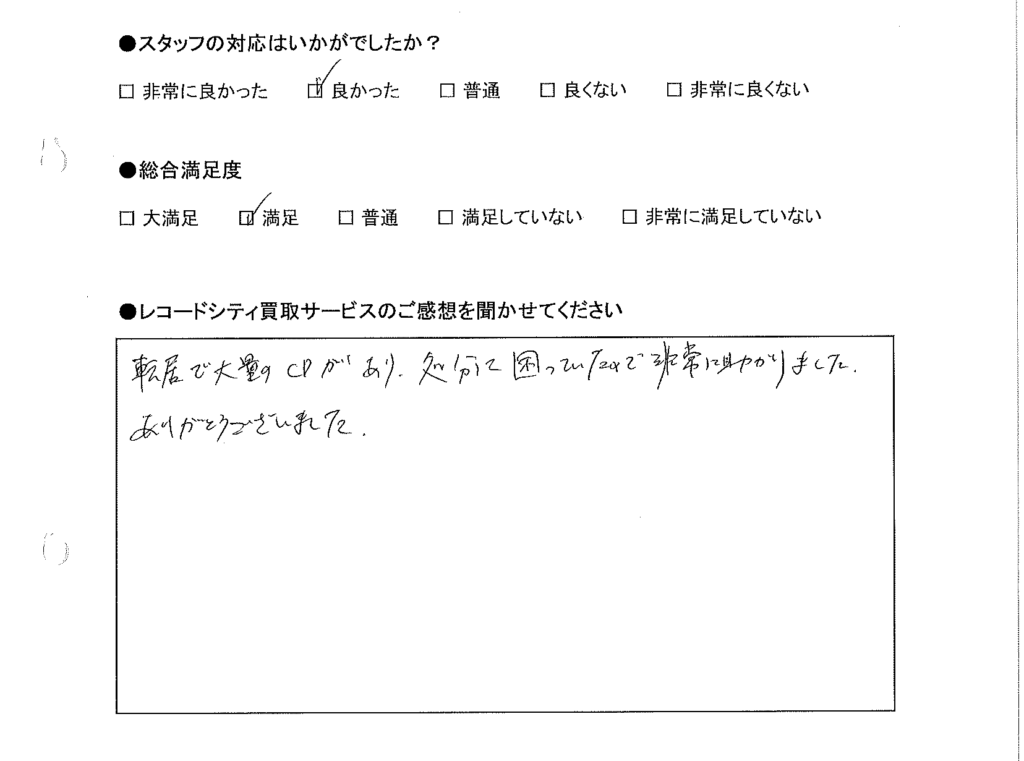 ●スタッフの対応はいかがでしたか？
□ 非常に良かった ☑ 良かった □ 普通 □ 良くない □ 非常に良くない
●総合満足度
□ 大満足 ☑ 満足 □ 普通 □ 満足していない □ 非常に満足していない
●レコードシティ買取サービスのご感想を聞かせてください
転居で大量のCDがあり、処分に困っていたので非常に助かりました。
ありがとうございました。